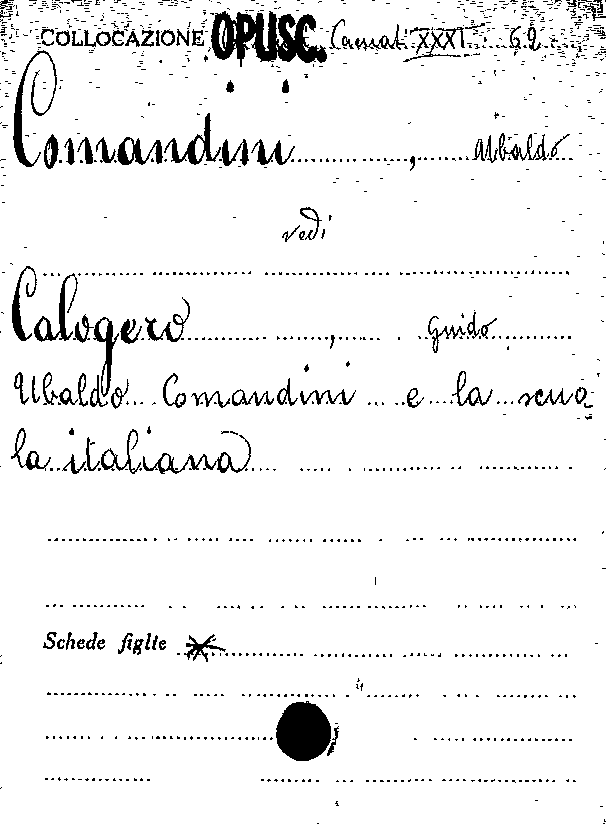 COLLOCAZIONE OPUSC. XXXI 62
Comandini, Ubaldo
vedi
Calogero, Guido
Ubaldo Comandini e la scuo-
la italiana
Schede figlie